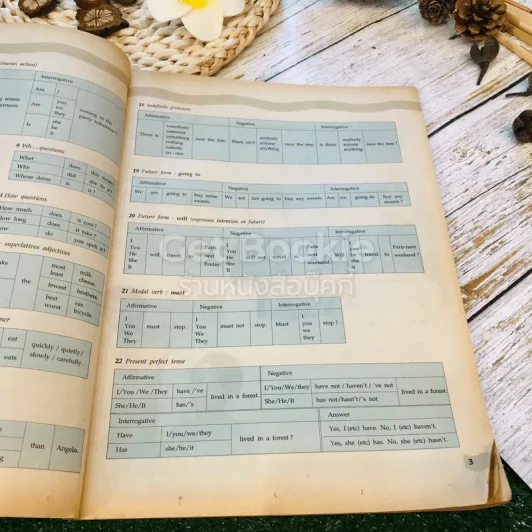 Interrogative
Are I
Are you we they
Is she he it
coming to the party tomorrow?
9 Wh....questions
What does this mean?
Why did she do it?
Whose dress is it?
How questions
How much does it cost?
How long does it take?
How do you spell it?
superlatives adjectives
the
most milk.
least cheese.
fewest brothers.
best car.
worst bicycle.
eat quickly / quietly/
eats slowly / carefully.
than Angela.
18 Indefinite pronouns
Affirmative Negative Interrogative
There is somebody someone something nothing nobody no-one near the tree. There isn't anybody anyone anything near the tree. Is there anybody anyone anything near the tree?
19 Future form : going to
Affirmative Negative Interrogative
We are going to buy some sweets. We are not going to buy any sweets. Are we going to buy any sweets?
20 Future form : will (expresses intention or future)
Affirmative Negative Interrogative
I You He She It will travel to Paris next Friday.
I You He She It will not travel to Paris next weekend.
Will I you he she it travel to Paris next weekend?
Get Bookie
ร้านหนังสือบุ๊คกี้
21 Modal verb : must
Affirmative Negative Interrogative
I You We They must stop. I You We They must not stop. Must I you we they stop?
22 Present perfect tense
Affirmative Negative
I/You /We /They have /'ve lived in a forest. I/You/We/they have not / haven't / 've not lived in a forest.
She/He/It has/'s She/He/It has not/hasn't/'s not
Interrogative Answer
Have I/you/we/they lived in a forest? Yes, I (etc) have. No, I (etc) haven't.
Has she/he/it Yes, she (etc) has. No, she (etc) hasn't.
3